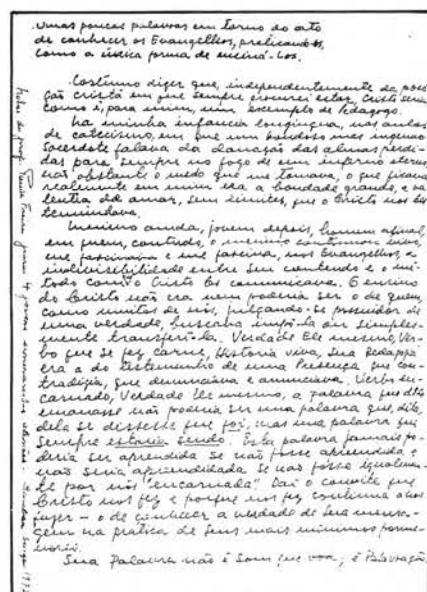 Umas poucas palavras em torno do ato
de conhecer os Evangelhos, praticando-os,
como a única forma de ensiná-los.
Costumo dizer que, independentemente da posi-
ção cristã em que sempre procurei estar, Cristo seria
como é, para mim, um exemplo de Pedagogo.
Na minha infância longínqua, nas aulas
de catecismo, em que um bondoso mas ingênuo
Sacerdote falava da danação das almas perdi-
das para sempre no fogo de um inferno eterno,
não obstante o medo que me tomava, o que ficava
realmente em mim era a bondade grande, a va-
lentia de amar, sem limites, que o Cristo nos
temunhava.
Menino ainda, jovem depois, homem afinal,
em quem, contudo, o menino continuou vivo,
me fascinava e me fascina, nos Evangelhos, a
indivisibilidade entre seu conteúdo e o mé-
todo com que o Cristo os comunicava. O ensino
de Cristo não era nem poderia ser o de quem,
como muitos de nós, julgando-se possuidor de
uma verdade, buscava impô-la ou simples-
mente transferi-la. Verdade Ele mesmo, Ver-
bo que se fez carne, História viva, sua pedagogia
era a do testemunho de uma Presença que con-
tradizia, que denunciava e anunciava. Verbo en-
carnado, Verdade Ele mesmo, a palavra que dEle
emanasse não poderia ser uma palavra que, dita,
dela se dissesse que foi, mas uma palavra que
sempre estaria sendo. Esta palavra jamais po-
deria ser aprendida se não fosse apreendida e
não seria apreendida se não fosse igualmen-
te por nós "encarnada". Daí o convite que
Cristo nos fez e porque nos fez continua a nos
fazer — o de conhecer a verdade de sua mensa-
gem na prática de seus mais mínimos porme-
nores.
Sua Palavra não é som que voa; é PalavrAção.
prof. Paulo Freire jovens seminaristas alemães. Genebra Suíça 197